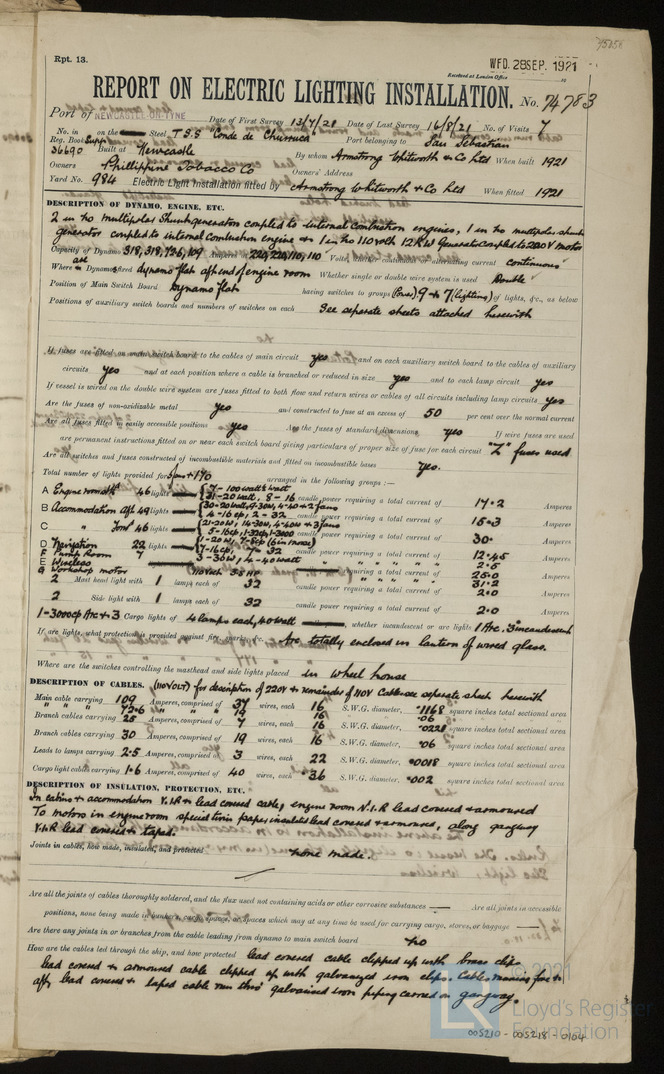 45856
Rpt. 13.
WFD. 28 SEP. 1921
Received at London Office
REPORT ON ELECTRIC LIGHTING INSTALLATION. No. 74783
Port of NEWCASTLE-ON-TYNE Date of First Survey 13/4/21 Date of Last Survey 16/8/21 No. of Visits 7
No. in on the Steel T.S.S "Conde de Churruca" Port belonging to San Sebastian
Reg. Book Supp
36690 Built at Newcastle By whom Armstrong Whitworth & Co Ltd When built 1921
Owners Phillippine Tobacco Co Owners' Address
Yard No. 984 Electric Light Installation fitted by Armstrong Whitworth & Co Ltd When fitted 1921
DESCRIPTION OF DYNAMO, ENGINE, ETC.
2 in no multipolar Shunt generators coupled to internal Combustion engines, 1 in no multipolar shunt
generator coupled to internal Combustion engine & 1 in no 110 volt 12 KW Generator coupled to 220 V motor
Capacity of Dynamo 318, 318, 736, 109 Amperes 220, 220, 110, 110 Volts, current continuous
Where are Dynamos fixed dynamo flat aft end of engine room Whether single or double wire system is used Double
Position of Main Switch Board Dynamo flat having switches to groups (Power) 9 & 7 (lighting) of lights, &c., as below
Positions of auxiliary switch boards and numbers of switches on each See separate sheets attached herewith
If fuses are fitted on main switch board to the cables of main circuit yes and on each auxiliary switch board to the cables of auxiliary
circuits yes and at each position where a cable is branched or reduced in size yes and to each lamp circuit yes
If vessel is wired on the double wire system are fuses fitted to both flow and return wires or cables of all circuits including lamp circuits yes
Are the fuses of non-oxidizable metal yes and constructed to fuse at an excess of 50 per cent over the normal current
Are all fuses fitted in easily accessible positions yes Are the fuses of standard dimensions yes If wire fuses are used
are permanent instructions fitted on or near each switch board giving particulars of proper size of fuse for each circuit "Z" fuses used
Are all switches and fuses constructed of incombustible materials and fitted on incombustible bases yes.
Total number of lights provided for 5 fans + 170 arranged in the following groups :—
A Engine room 46 lights 7 - 100 watt
31 - 20 watt, 8 - 16 candle power requiring a total current of 17.2 Amperes
B Accommodation aft 49 lights 30 - 20 watt, 9 - 30w, 4 - 40 + 2 fans
4 - 16 cp, 2 - 32 candle power requiring a total current of 15.3 Amperes
C " Ford 46 lights 21 - 20w, 14 - 30w, 4 - 40w + 3 fans
5 - 16cp, 1 - 32cp, 1 - 3000 candle power requiring a total current of 30. Amperes
D Navigation 22 lights 1 - 20w, 7 - 8cp (6 in morse)
7 - 16cp, 7 - 32 candle power requiring a total current of 12.45 Amperes
3 - 30w, 4 - 40 watt 2.5
E Wireless 25.0
G Workshop motor 110 volt 3.5 HP 31.2
2 Mast head light with 1 lamps each of 32 candle power requiring a total current of 2.0 Amperes
2 Side light with 1 lamps each of 32 candle power requiring a total current of 2.0 Amperes
1 - 3000cp Arc & 3 Cargo lights of 4 lamps each, 40 watt whether incandescent or arc lights 1 Arc. 3 incandescent
If arc lights, what protection is provided against fire, sparks, &c. Arc totally enclosed in lantern of wired glass.
Where are the switches controlling the masthead and side lights placed in wheel house
DESCRIPTION OF CABLES. (110 VOLT) for description of 220V & remainder of 110V Cables see separate sheet herewith
Main cable carrying 109 Amperes, comprised of 37 wires, each 16 S.W.G. diameter, .1168 square inches total sectional area
" " " 72.6 " " " 19 16 .06
Branch cables carrying 25 Amperes, comprised of 7 wires, each 16 S.W.G. diameter, .0221 square inches total sectional area
Branch cables carrying 30 Amperes, comprised of 19 wires, each 16 S.W.G. diameter, .06 square inches total sectional area
Leads to lamps carrying 2.5 Amperes, comprised of 3 wires, each 22 S.W.G. diameter, .0018 square inches total sectional area
Cargo light cables carrying 1.6 Amperes, comprised of 40 wires, each 36 S.W.G. diameter, .002 square inches total sectional area
DESCRIPTION OF INSULATION, PROTECTION, ETC.
In cabins & accommodation V.I.R & lead covered cable, engine room V.I.R lead covered & armoured
To motors in engine room special twin paper insulated lead covered & armoured, along gangway
V.I.R lead covered & taped.
Joints in cables, how made, insulated, and protected none made.
Are all the joints of cables thoroughly soldered, and the flux used not containing acids or other corrosive substances — Are all joints in accessible
positions, none being made in bunkers, cargo spaces, or spaces which may at any time be used for carrying cargo, stores, or baggage —
Are there any joints in or branches from the cable leading from dynamo to main switch board no
How are the cables led through the ship, and how protected lead covered cable clipped up with brass clips
lead covered & armoured cable clipped up with galvanized iron clips. Cables running for &
aft, lead covered & taped cable run thro' galvanised iron piping carried on gangway.
© 2021
LR
Lloyd's Register
Foundation
005210 - 005218 - 0104